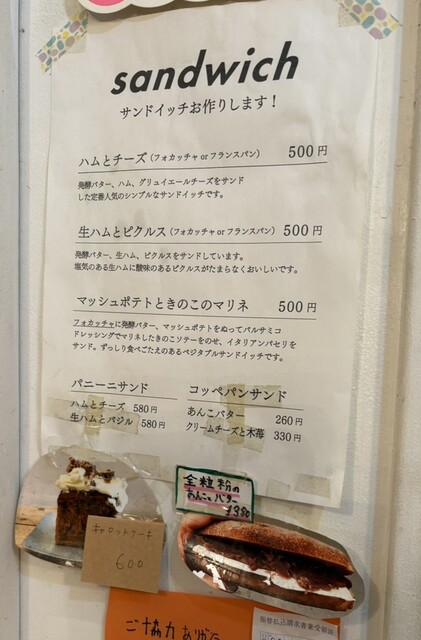 sandwich
サンドイッチお作りします！
ハムとチーズ（フォカッチャ or フランスパン） 500円
発酵バター、ハム、グリュイエールチーズをサンド
した定番人気のシンプルなサンドイッチです。
生ハムとピクルス（フォカッチャ or フランスパン） 500円
発酵バター、生ハム、ピクルスをサンドしています。
塩気のある生ハムに酸味のあるピクルスがたまらなくおいしいです。
マッシュポテトときのこのマリネ 500円
フォカッチャに発酵バター、マッシュポテトをぬってバルサミコ
ドレッシングでマリネしたきのこソテーをのせ、イタリアンパセリを
サンド。ずっしり食べごたえのあるベジタブルサンドイッチです。
パニーニサンド
ハムとチーズ 580円
生ハムとバジル 580円
コッペパンサンド
あんこバター 260円
クリームチーズと木苺 330円
全粒粉の
あんこバター
¥380
キャロットケーキ
600
ご協力ありが